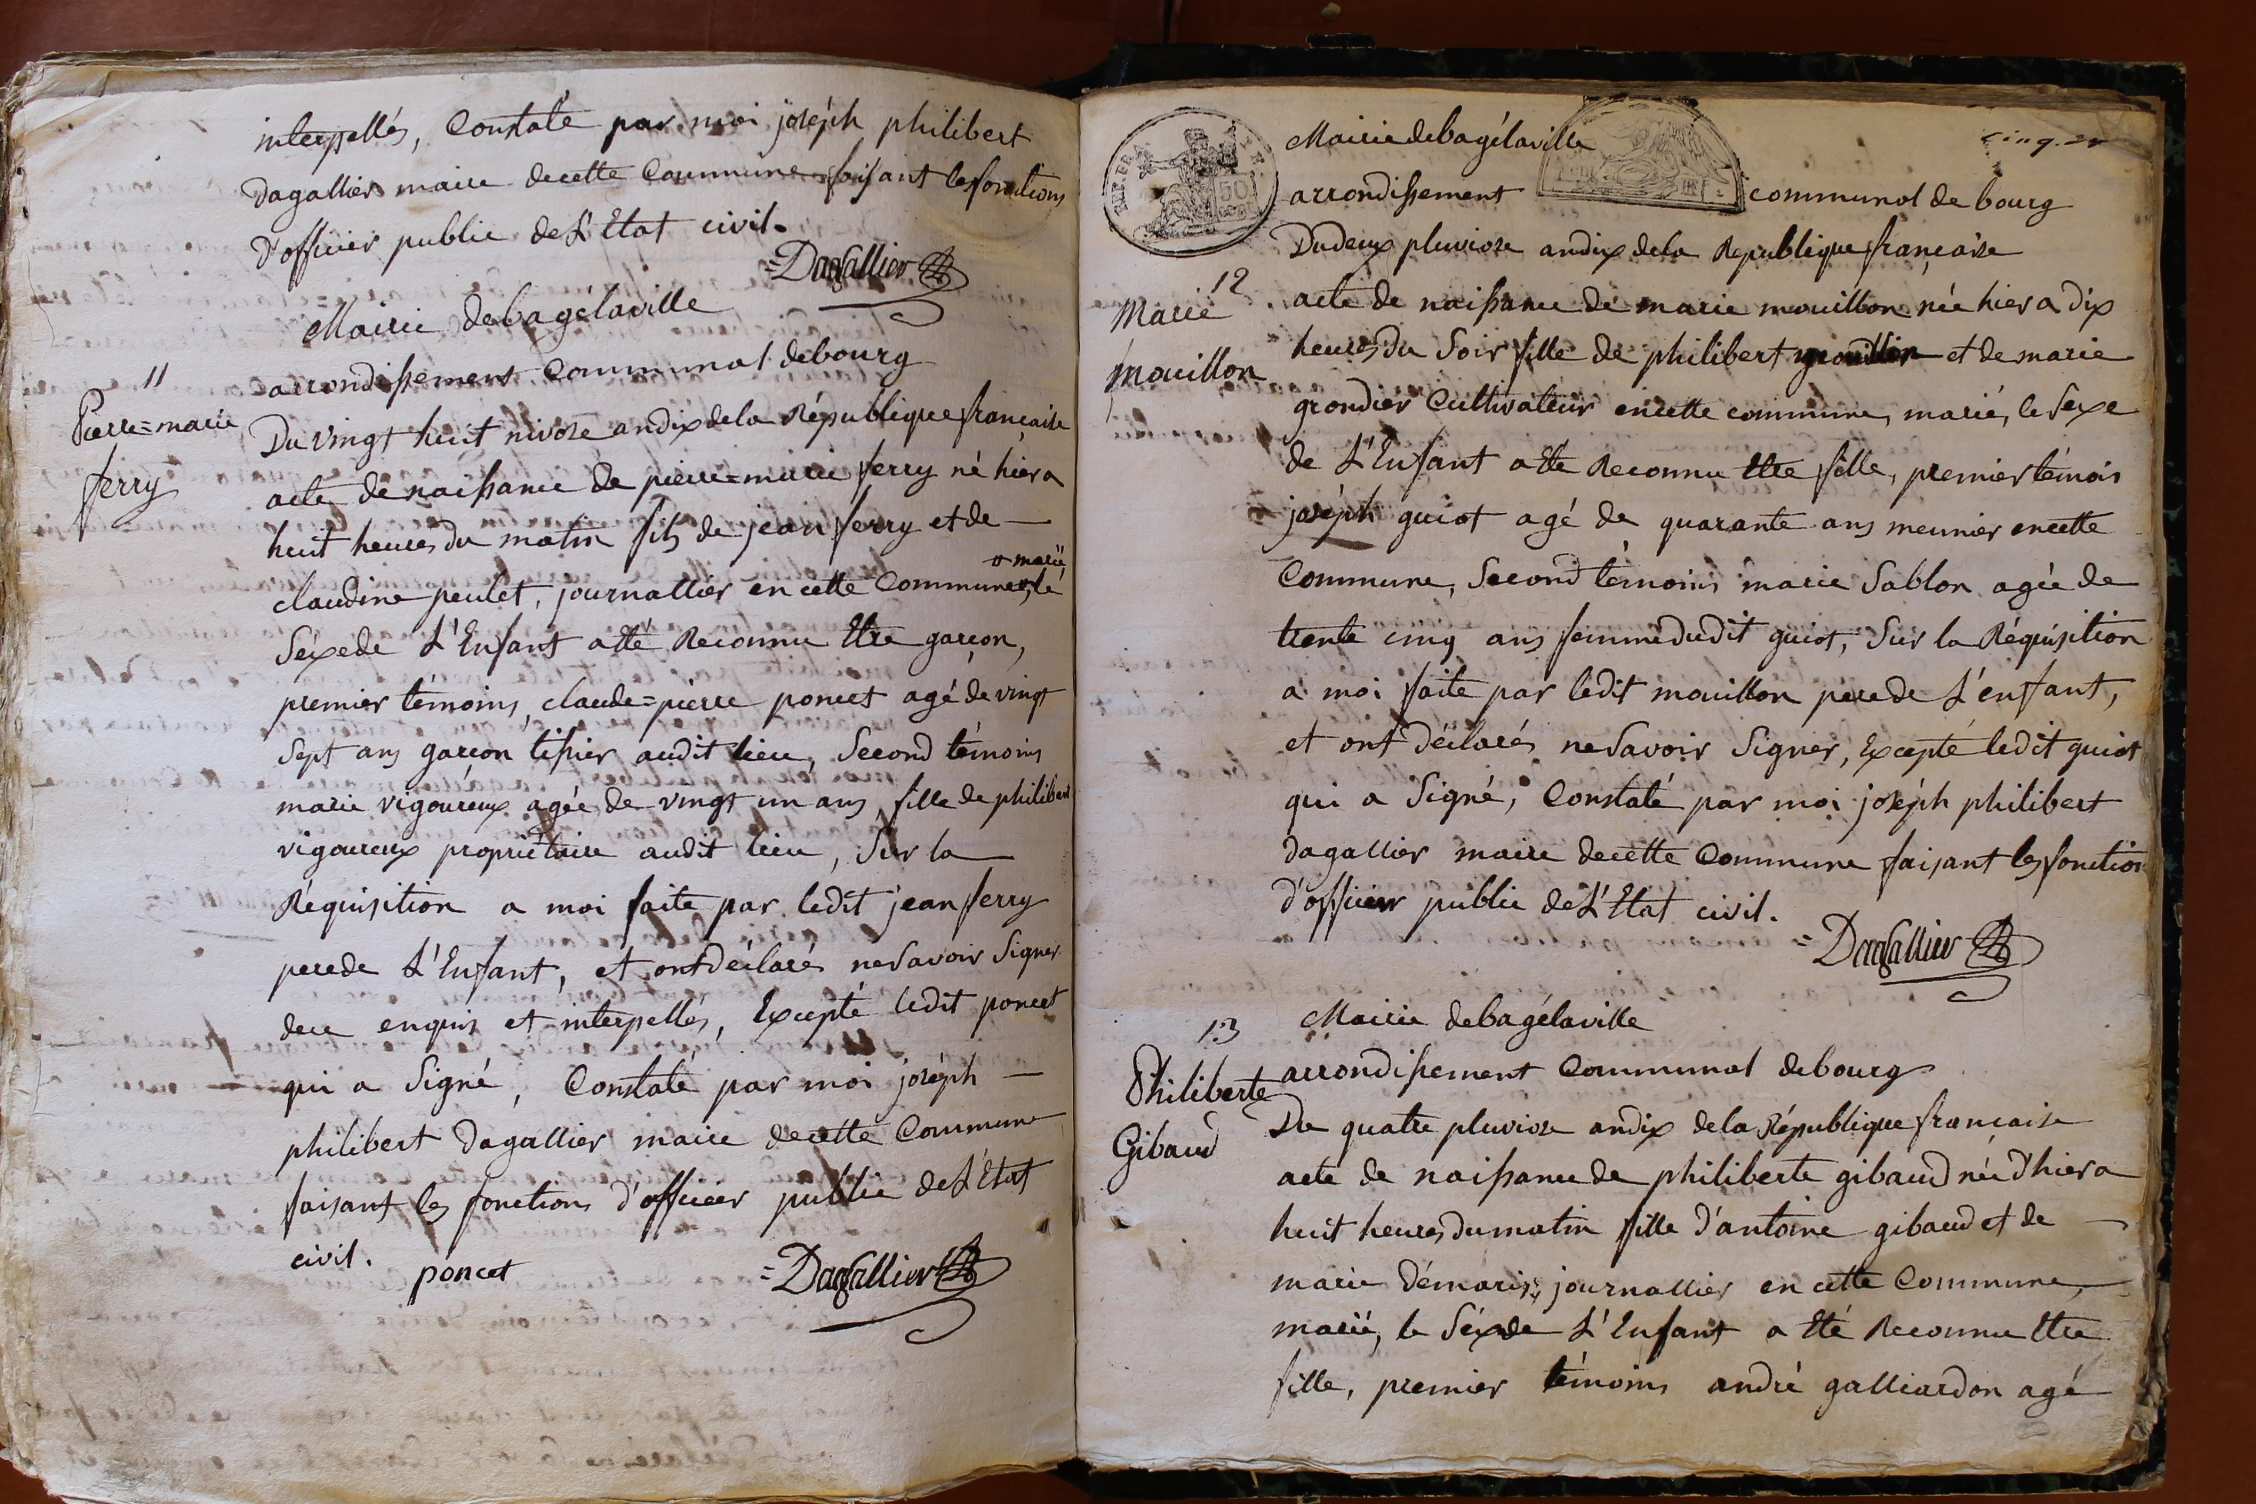 interpellés, Constaté par moi joséph philibert
Dagallier maire decette Commune faisant les fonctions
D'officier public de L'Etat civil.
=Dagallier
Mairie debagélaville
arrondissement Communal debourg
11
Pierre=marie
ferry
Du vingt huit nivose andix dela République française
acte de naissance de pierre=marie ferry né hier a
huit heures du matin fils de jean ferry et de
claudine peulet, journallier en cette Commune, le
marié,
Séxe de L'Enfant a été Reconnu Etre garçon,
premier témoins, claude=pierre poncet agé de vingt
Sept ans garçon tissier audit lieu, Second témoins
marie vigoureux agée de vingt un ans fille de philibert
vigoureux propriétaire audit lieu, Sur la
Réquisition a moi faite par ledit jean ferry
pere de L'Enfant, et ont déclarés ne Savoir Signer
dece enquis et interpellés, Excepté ledit poncet
qui a Signé, Constaté par moi joséph
philibert Dagallier maire decette Commune
faisant les fonctions d'officier public de L'Etat
civil. poncet
=Dagallier
cinq.
50
Mairie debagélaville
arrondissement communal de bourg
Du deux pluviose andix dela Republique française
12
Marie
mouillon
acte de naissance de marie mouillon née hier a dix
heures du Soir fille de philibert mouillon et de marie
grondier Cultivateur encette commune, marié, le Sexe
de L'Enfant a été Reconnu Etre fille, premier témoin
joséph guiot agé de quarante ans meunier encette
Commune, Second témoins marie Sablon agée de
trente cinq ans femme dudit guiot, Sur la Réquisition
a moi faite par ledit mouillon pere de L'enfant,
et ont déclarés ne Savoir Signer, Excepté ledit guiot
qui a Signé, Constaté par moi joséph philibert
Dagallier maire decette Commune faisant les fonction
d'officier public de L'Etat civil.
=Dagallier
Mairie debagélaville
arrondissement Communal debourg
13
Philiberte
Gibaud
Du quatre pluviose andix dela République française
acte de naissance de philiberte gibaud née d'hier a
huit heures du matin fille d'antoine gibaud et de
marie démaris, journallier en cette Commune,
marié, le Séxe de L'Enfant a Eté Reconnu Etre
fille, premier témoins andré galliardon agé